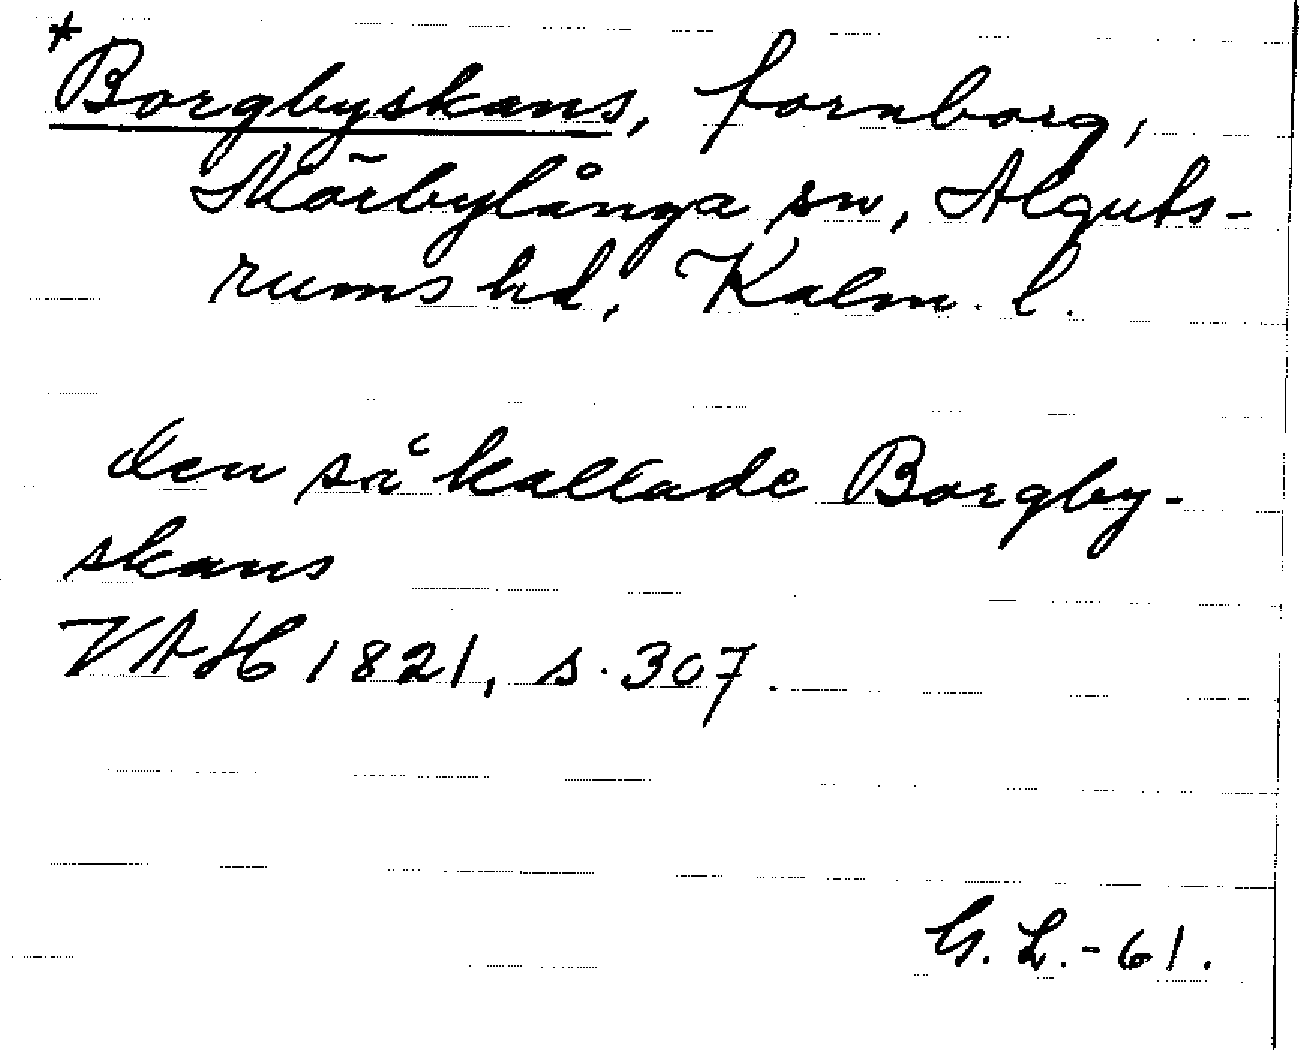 *Borgbyskans, fornborg,
Mörbylånga sn, Alguts-
rums hd, Kalm. l.
den så kallade Borgby-
skans
VAH 1821, s. 307.
G. L. - 61.